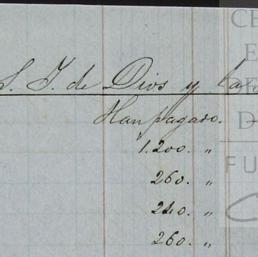 S. J. de Dios y
Han pagado.
1.200. "
260. "
240. "
260. "
CE
E
D
FU
C